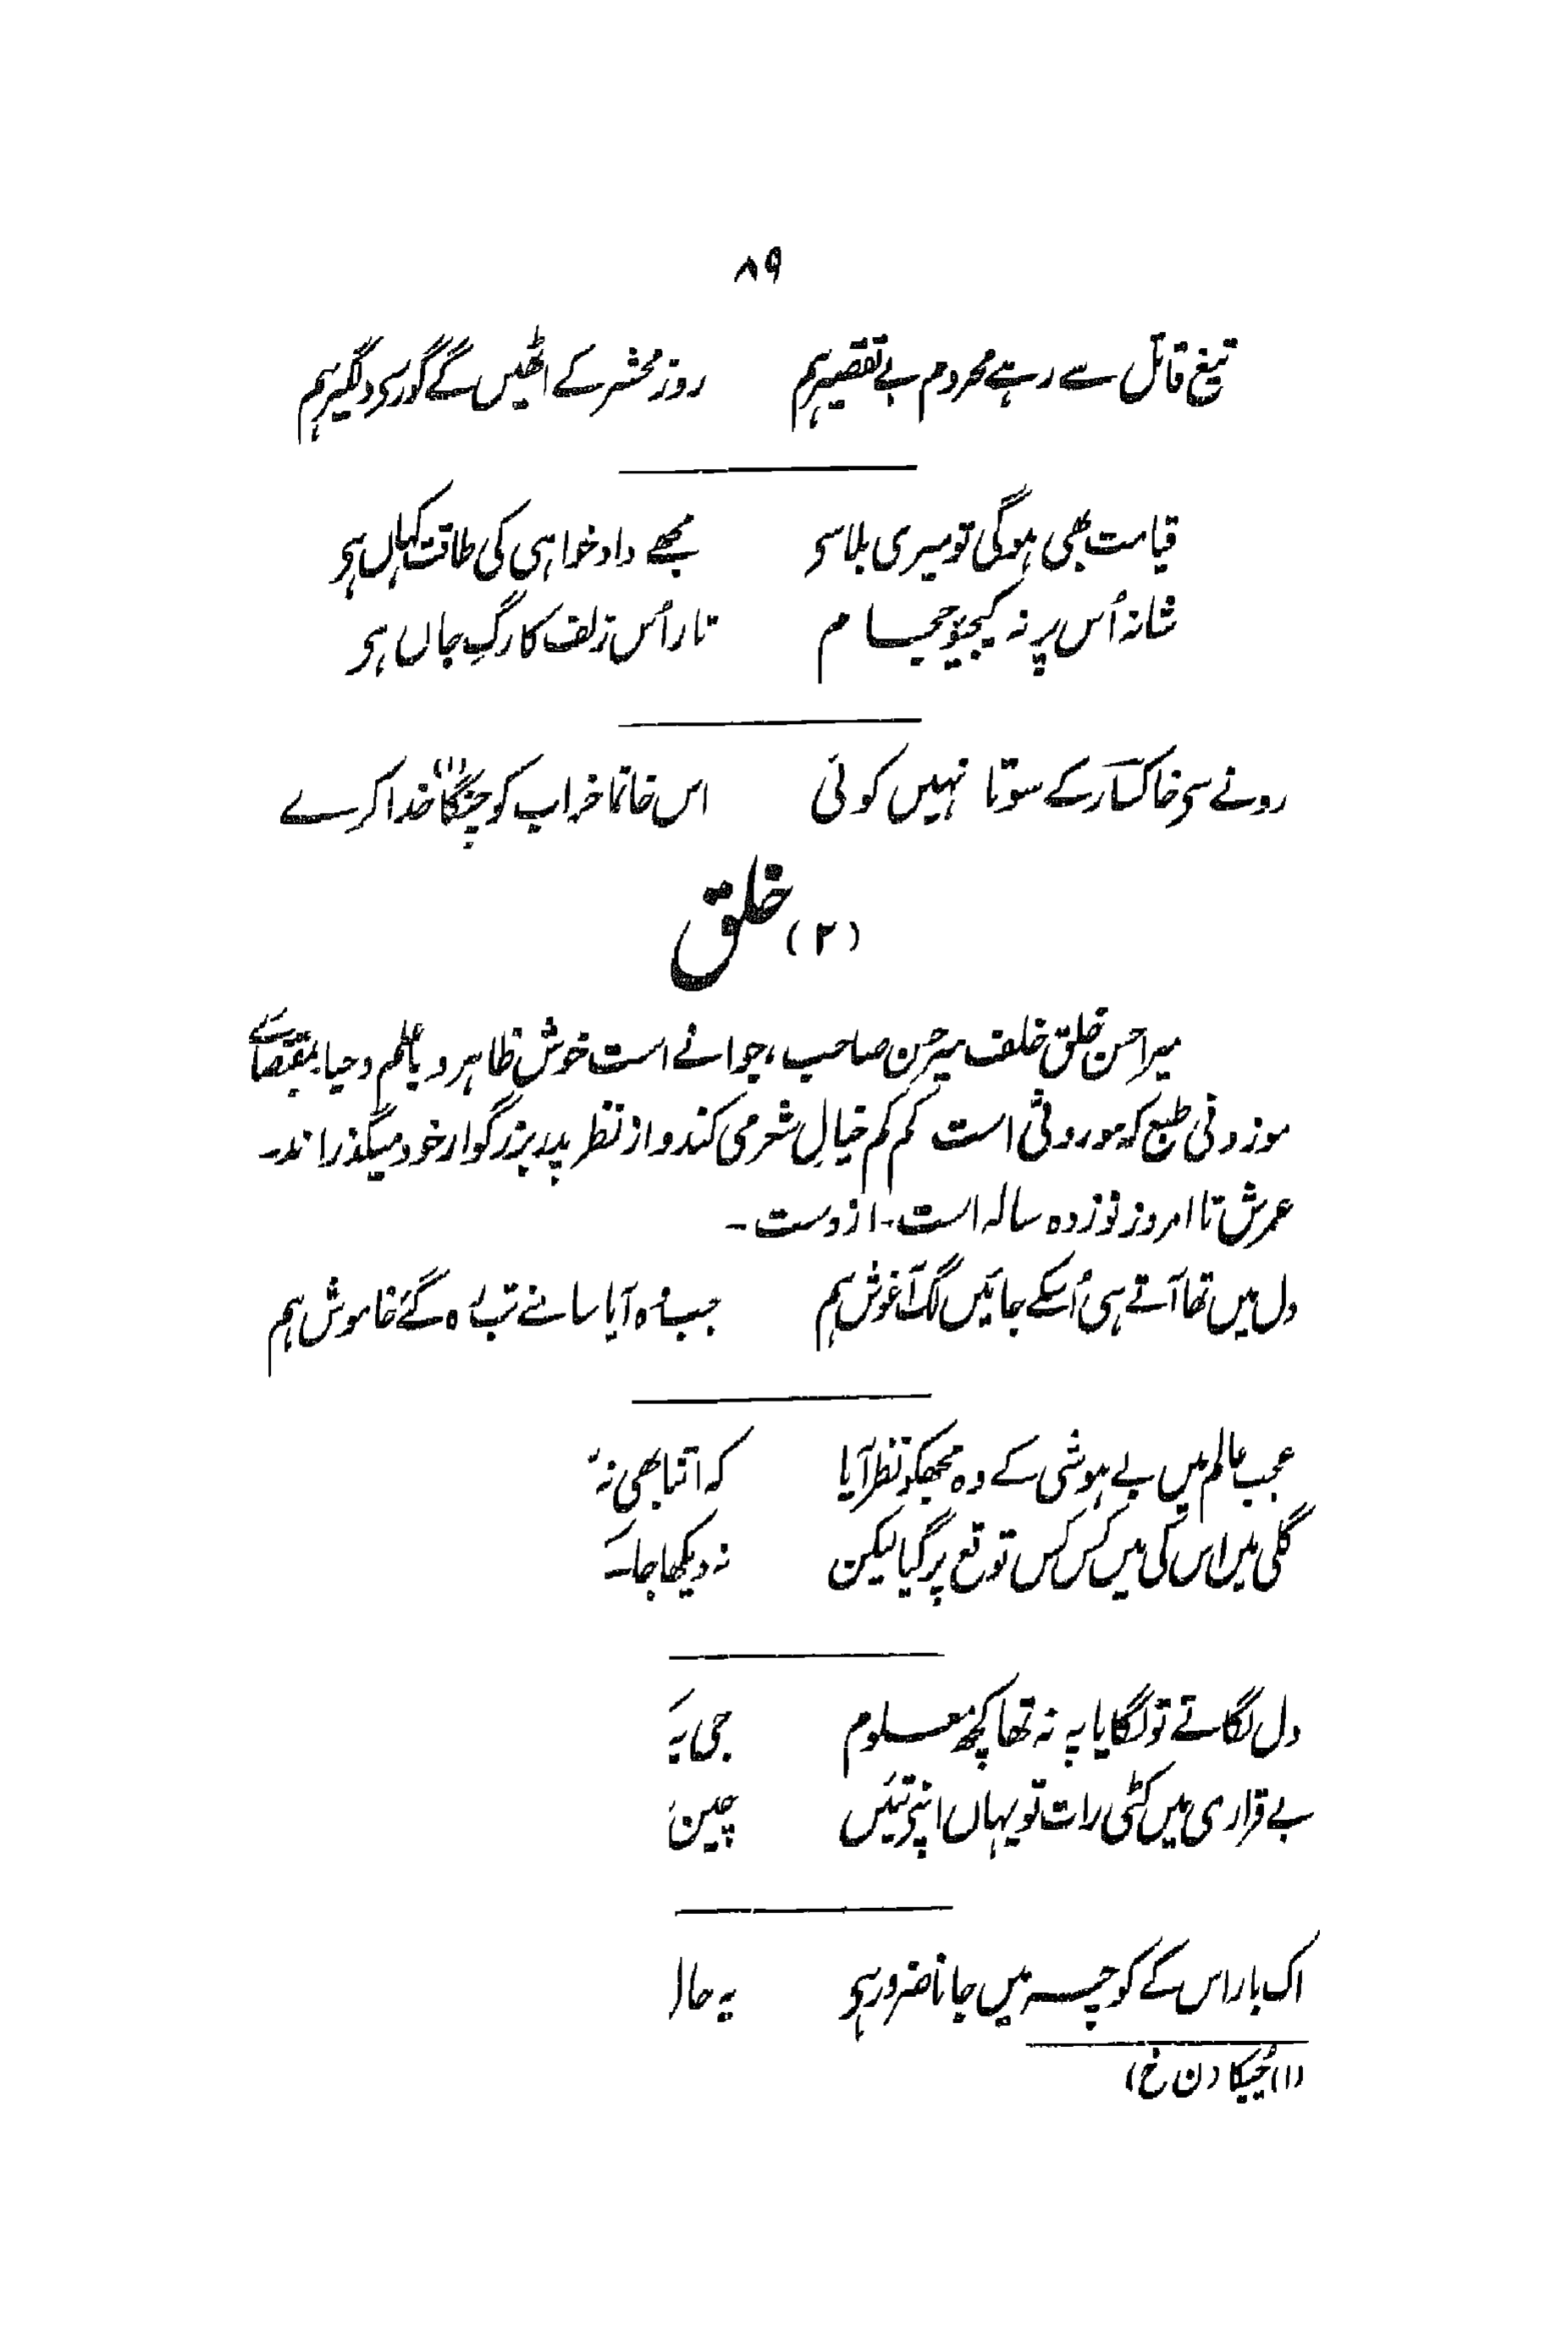 ۸۹
تیغ قاتل سے رہے محروم بے تقصیر ہم روز محشر کے اٹھیں گے گور سی دلگیر ہم
قیامت بھی ہوگی تو میری بلا سے مجھے داد خواہی کی طاقت کہاں ہی
شانہ اُس پر نہ کیجیو حجام تار اُس زلف کا رگِ جاں ہی
رونے سی خاکسار کے سوتا نہیں کوئی اس خانما خراب کو چنگا(۱) خدا کرے
(۲) خلق
میر احسن خلق خلف میر حسن صاحب، جوانے است خوش ظاہر و باعلم و حیا، بمقتضائے
موزونی طبع کہ موروثی است کم کم خیالِ شعر می کند و از نظر پدر بزرگوار خود میگذراند۔
عمرش تا امروز نوزدہ سالہ است۔ از وست۔
دل میں تھا آتے ہی اُسکے جائیں لگ آغوش ہم جب وہ آیا سامنے تب رہ گئے خاموش ہم
عجب عالم میں بے ہوشی کے وہ مجھکو نظر آیا کہ اتنا بھی نہ
گلی میں اس کی میں کس کس توقع پر گیا لیکن نہ دیکھا جا
دل لگاتے تو لگایا پہ نہ تھا کچھ معلوم جی
بے قراری میں کٹی رات تو یہاں اپنی تئیں چین
اک بار اس کے کوچہ میں جانا ضرور ہی یہ حال
(۱) (ن خ)